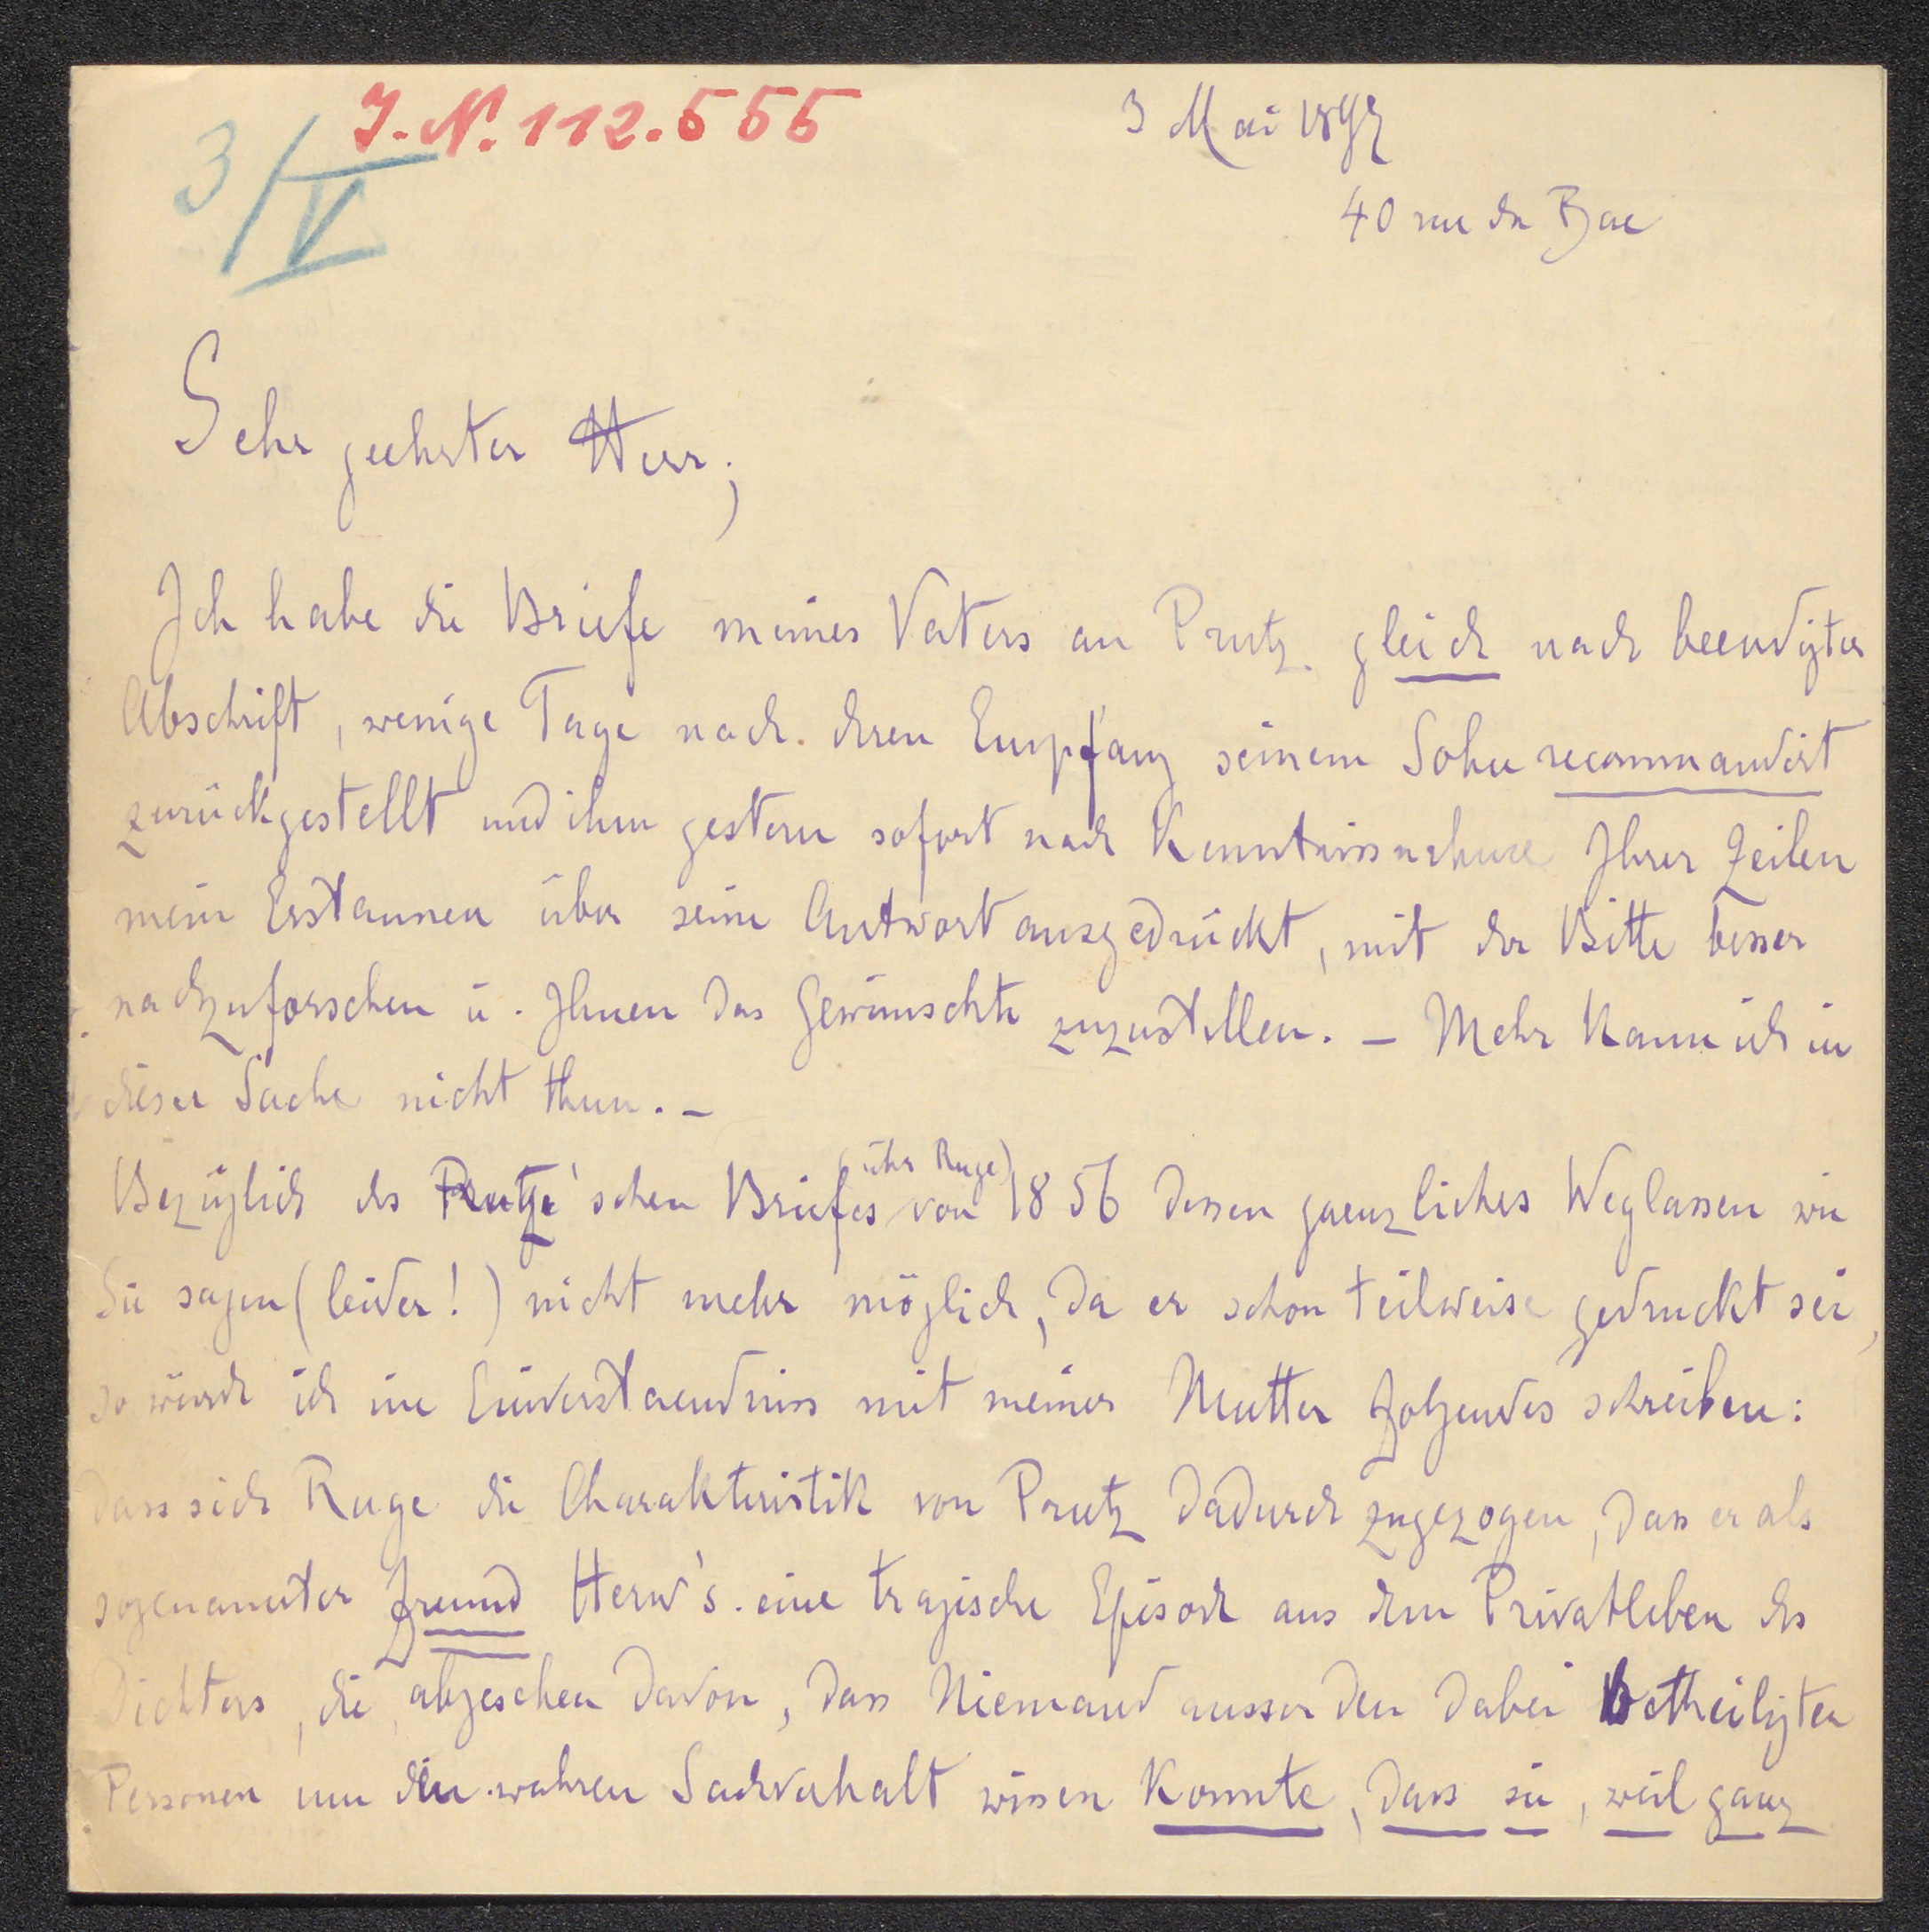 J.N. 112.555
3/V
3 Mai 1897
40 rue du Bac
Sehr geehrter Herr;
Ich habe die Briefe meines Vaters an Prutz gleich nach beendigter
Abschrift, wenige Tage nach deren Empfang seinem Sohn recommandirt
zurückgestellt und ihm gestern sofort nach Kenntnissnahme Ihrer Zeilen
mein Erstaunen über seine Antwort ausgedrückt, mit der Bitte besser
nachzuforschen u. Ihnen das Gewünschte zuzustellen. – Mehr kann ich in
dieser Sache nicht thun. –
Bezüglich des Prutz'schen Briefes (über Ruge) von 1856 dessen gaenzliches Weglassen wie
Sie sagen (leider!) nicht mehr möglich, da er schon teilweise gedruckt sei,
so würde ich im Einverstaendniss mit meiner Mutter folgendes schreiben:
dass sich Ruge die Charakteristik von Prutz dadurch zugezogen, dass er als
sogenannter Freund Herw's. eine tragische Episode aus dem Privatleben des
Dichters, die, abgesehen davon, dass Niemand ausser den dabei betheiligten
Personen um den wahren Sachverhalt wissen konnte, dass sie, weil ganz